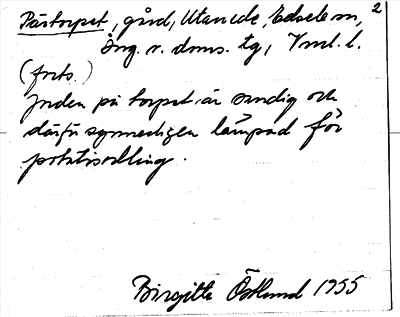 Pästorpet, gård, Utanede, Edsele sn, 2
Ång. n. doms. tg, Vnl. l.
(forts.)
Jorden på torpet är sandig och
därför synnerligen lämpad för
potatisodling.
Birgitta Östlund 1955